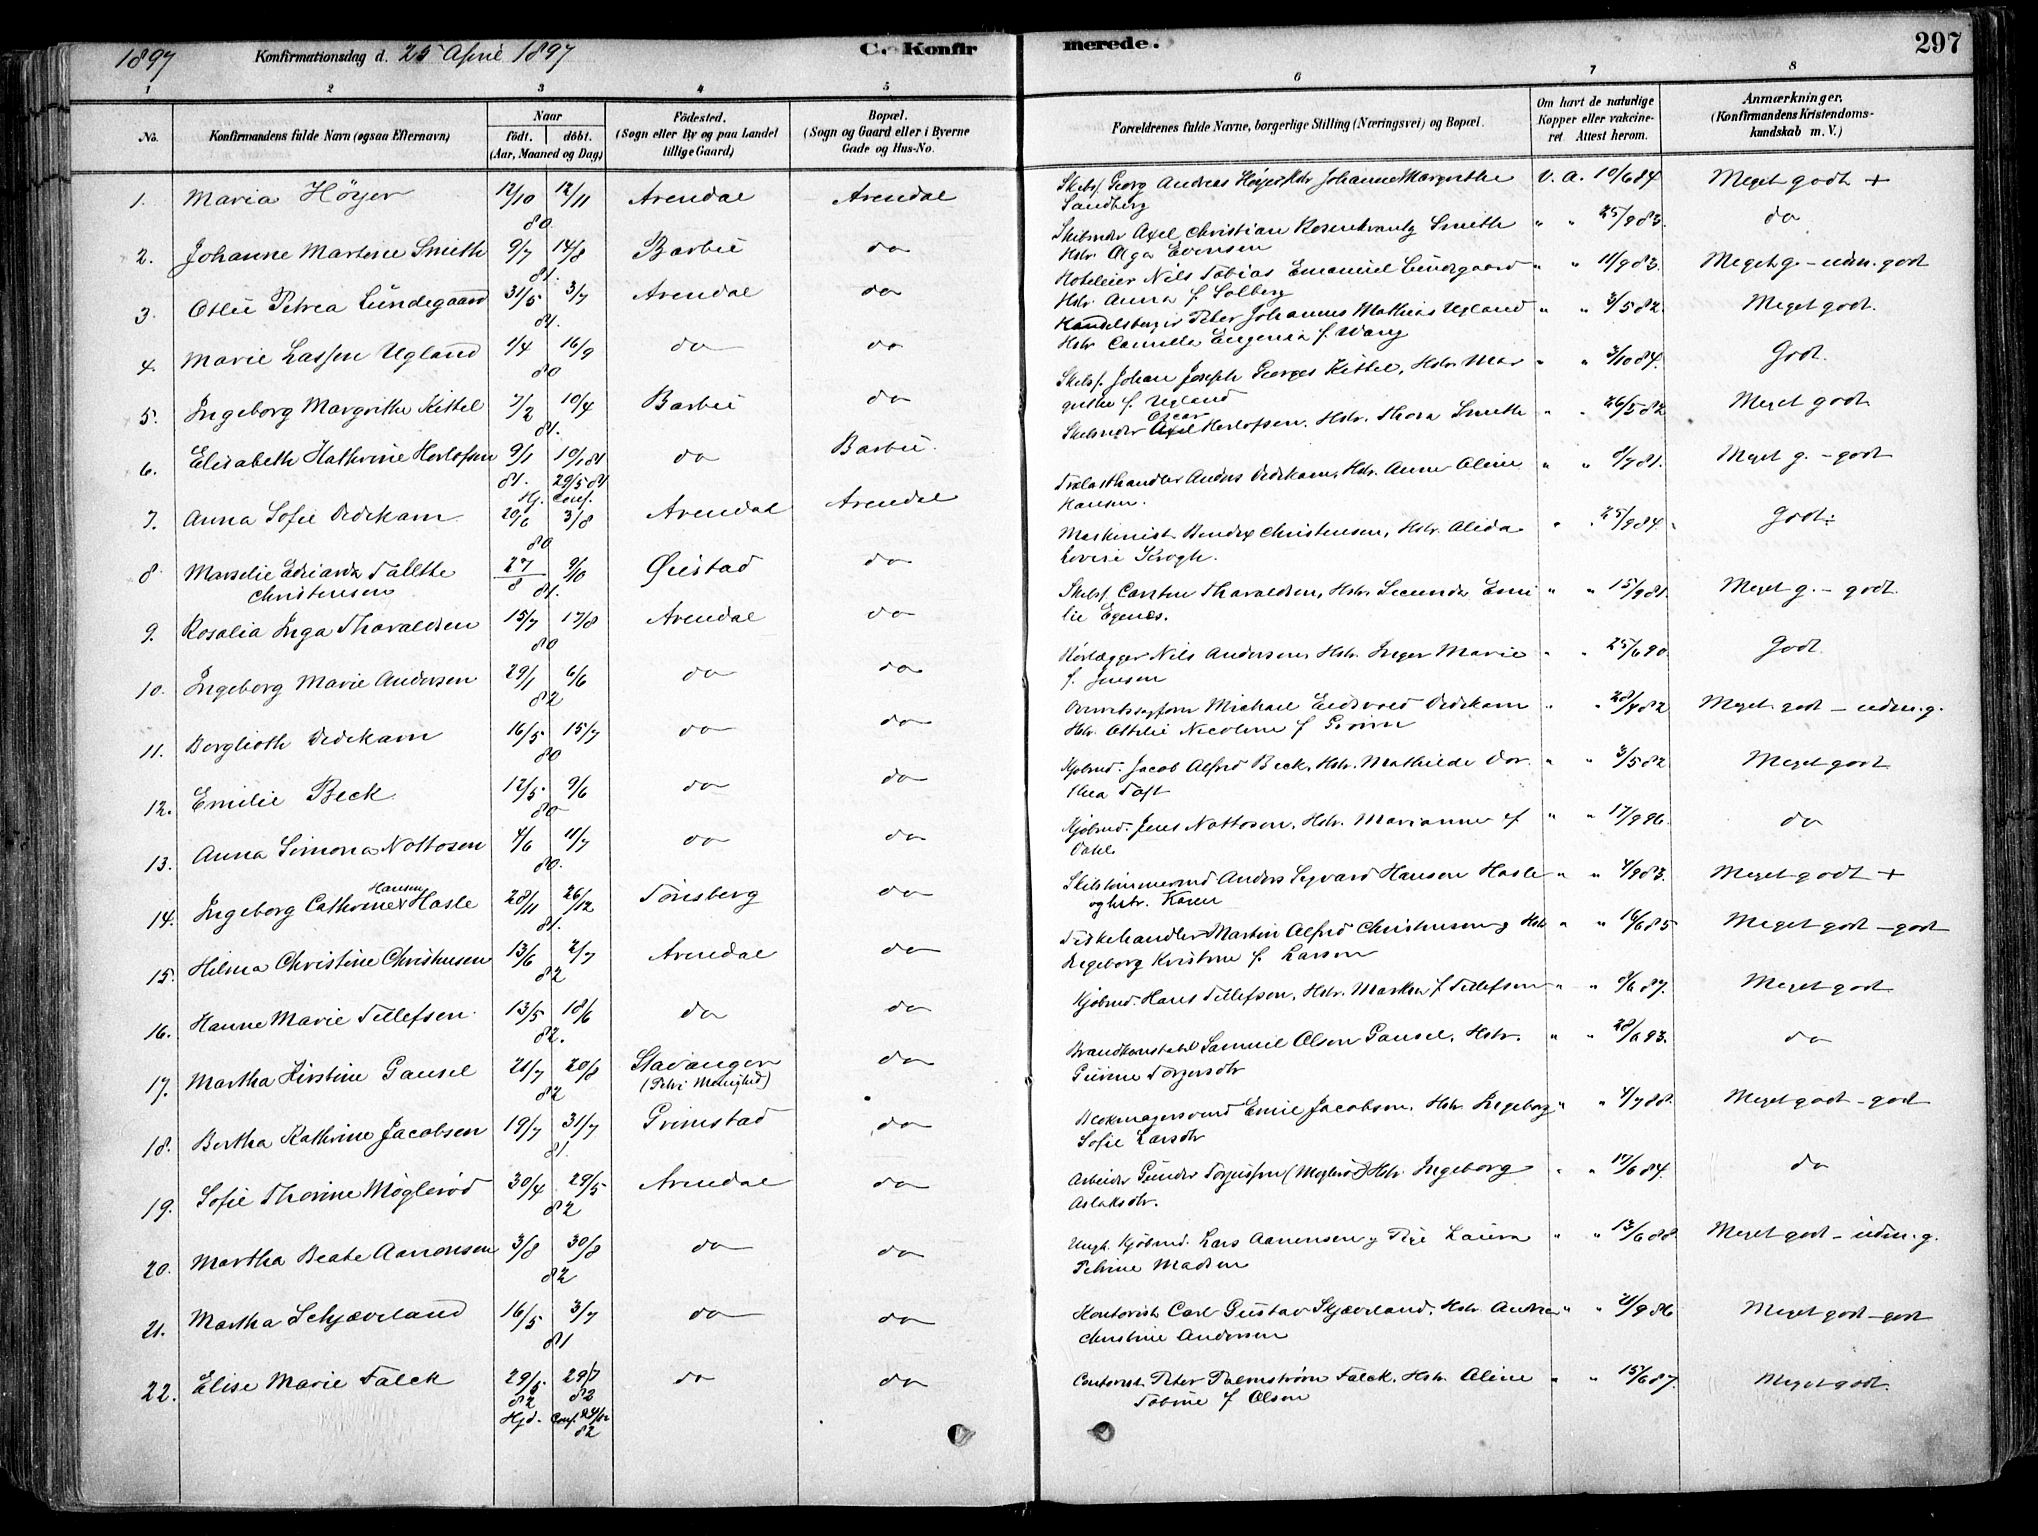 1897 Konfirmationsdag d. 25 April 1897 C. Konfirmerede. 297
1 2 3 4 5 6 7 8
No. Konfirmandens fulde Navn (ogsaa Efternavn) Naar født. døbt. (Aar, Maaned og Dag) Fødested. (Sogn eller By og paa Landet tillige Gaard) Bopæl. (Sogn og Gaard eller i Byerne Gade og Hus-No. Forældrenes fulde Navne, borgerlige Stilling (Næringsvei) og Bopæl. Om havt de naturlige Kopper eller vakcineret. Attest herom. Anmærkninger. (Konfirmandens Kristendomskundskab m. V.)
1. Maria Höyer 12/10 12/11 80 Arendal Arendal Skibsf. Georg Andreas Höyer, Hstr. Johanne Margrethe Sandberg v. a. 10/6 84 Meget godt +
2. Johanne Martine Smith 9/7 14/8 81. Barbu do Skibsreder Axel Christian Rosenkrantz Smith Hstr. Olga Evensen " " 25/9 83. do
3. Otlie Petrea Lundegaard 31/5 3/7 81. Arendal do Hoteleier Nils Tobias Emanuel Lundegaard Hstr. Anna f. Solberg " " 11/9 83. Meget g. - udm. godt
4. Marie Lassen Ugland 1/4 16/9 80 do do Handelsborger Peter Johannes Mathias Ugland Hstr. Camilla Eugenia f. Wang " " 3/5 82. Meget godt.
5. Ingeborg Margrithe Kittel 7/2 10/4 81. Barbu do Skibsf. Johan Joseph Georges Kittel, Hstr. Margrethe f. Ugland " " 3/10 84. Godt.
6. Elisabeth Kathrine Herlofsen 9/1 81. 10/1 81 29/5 81 Hj. Conf. do Barbu. Skibsreder Oscar Herlofsen. Hstr. Thora Smith " " 26/5 82 Meget godt
7. Anna Sofie Dedekam 20/6 3/8 80 Arendal Arendal Trælasthandler Anders Dedekam, Hstr. Anne Oline Hansen. " " 8/7 81. Meget g. - godt
8. Marselie Edvarda Tallethe Christensen 27/8 9/10 81. Øiestad do Maskinist Bendix Christensen, Hstr. Alida Lovise Krogh. " " 25/9 84. Godt.
9. Rosalia Inga Tharaldsen 15/7 17/8 80 Arendal do Skibsf. Carsten Tharaldsen, Hstr. Secunda Emilie Egenæs. " " 15/9 81. Meget g. - godt.
10. Ingeborg Marie Andersen 29/1 6/6 82 do do Rørlægger Nils Andersen, Hstr. Inger Marie f. Jensen " " 25/6 90. Godt
11. Berglioth Dedekam 16/5 15/7 80 do do Overretssagførr Michael Eidsvold Dedekam Hstr. Ottilie Nicoline f " " 28/4 82 Meget godt - udm. g.
12. Emilie Beck 12/5 9/6 80 do do Kjøbmd. Jacob Alfred Beck, Hstr. Mathilde Dorthea Toft " " 3/5 82 Meget godt
13. Anna Simona Nottosen 4/6 11/7 80. do do Kjøbmd. Jens Nottosen, Hstr. Marianne f Dahl. " " 17/9 96. do
14. Ingeborg Cathrine Hansen Hasle 28/11 26/12 81. Tönsberg do Skibstømmermd Anders Sigvard Hansen Hasle og hstr. Karen " " 4/9 83. Meget godt +
15. Hilma Christine Christensen 13/6 2/7 82 Arendal do Fiskehandler Martin Alfred Christensen, Hstr Ingeborg Kristine f. Larsen " " 16/6 85 Meget godt - godt
16. Hanne Marie Tellefsen 13/5 18/6 82. do do Kjøbmd. Hans Tellefsen, Hstr. Martha f Tellefsen " " 8/6 87. Meget godt
17. Martha Kirstine Gausel 21/7 20/8 82 Stavanger (Petri Menighed) do Brandkonstabel Samuel Olsen Gausel, Hstr. Gurine Torgersdtr " " 28/6 93. do
18. Bertha Kathrine Jacobsen 19/7 31/7 81. Grimstad do Blokmagersvend Emil Jacobsen. Hstr. Ingeborg Sofie Larsdtr " " 4/7 88. Meget godt - godt
19. Sofie Thorine Møglerød 30/4 29/5 82 Arendal do Arbeider Gunder Torjussen (Møglerød) Hstr. Ingeborg Aslaksdtr. " " 12/6 84. do
20. Martha Beate Aanonsen 3/8 30/8 82 do do Ungk. Kjøbmd. Lars Aanensen og Pige Laura Petrine Madsen " " 13/6 88 Meget godt - udm. g.
21. Martha Schjæverland 16/5 3/7 81 do do Kontorist Carl Gustav Skjæverland, Hstr. Andrea Christine Andersen " " 21/9 86 Meget godt - godt
22. Elise Marie Falck 29/5 82 29/7 82 Hjd. Conf. 82 do do Contorist Peter Palmstrøm Falck, Hstr. Aline Tobine f Olsen " " 15/6 87. Meget godt.